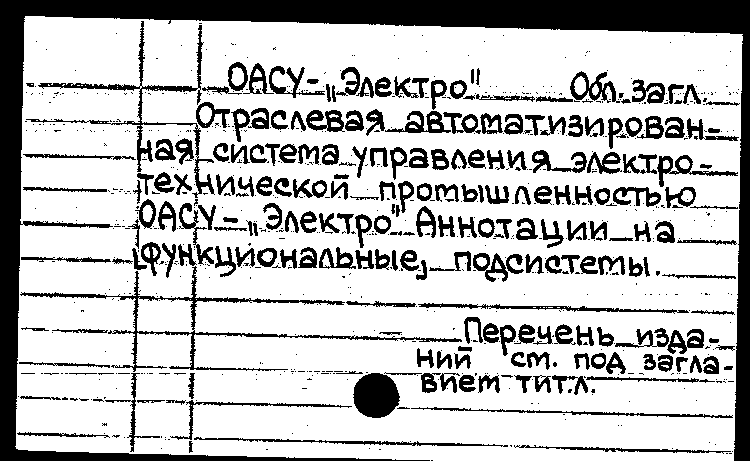 ОАСУ-„Электро" Обл. загл.
Отраслевая автоматизирован-
ная система управления электро-
технической промышленностью
ОАСУ-„Электро" Аннотации на
[функциональные] подсистемы.
Перечень изда-
ний см. под загла-
вием тит.л.